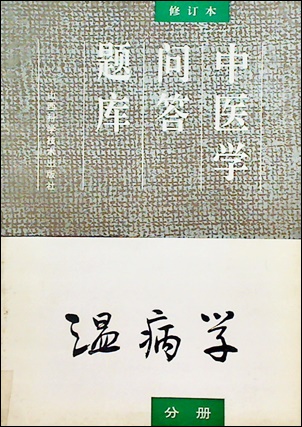 修订本
中医学
问答
题库
山西科学技术出版社
温病学
分册